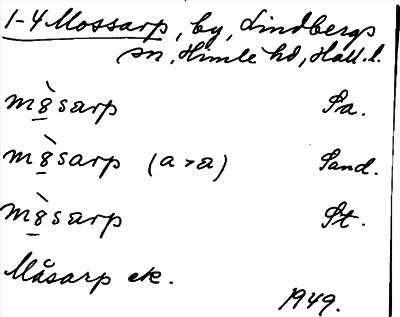 1-4 Mossarp, by, Lindbergs
sn, Himle hd, Hall. l.
mòsarp Sa.
mòsarp (a>a) Sand.
mòsarp St.
Måsarp ek.
1949.